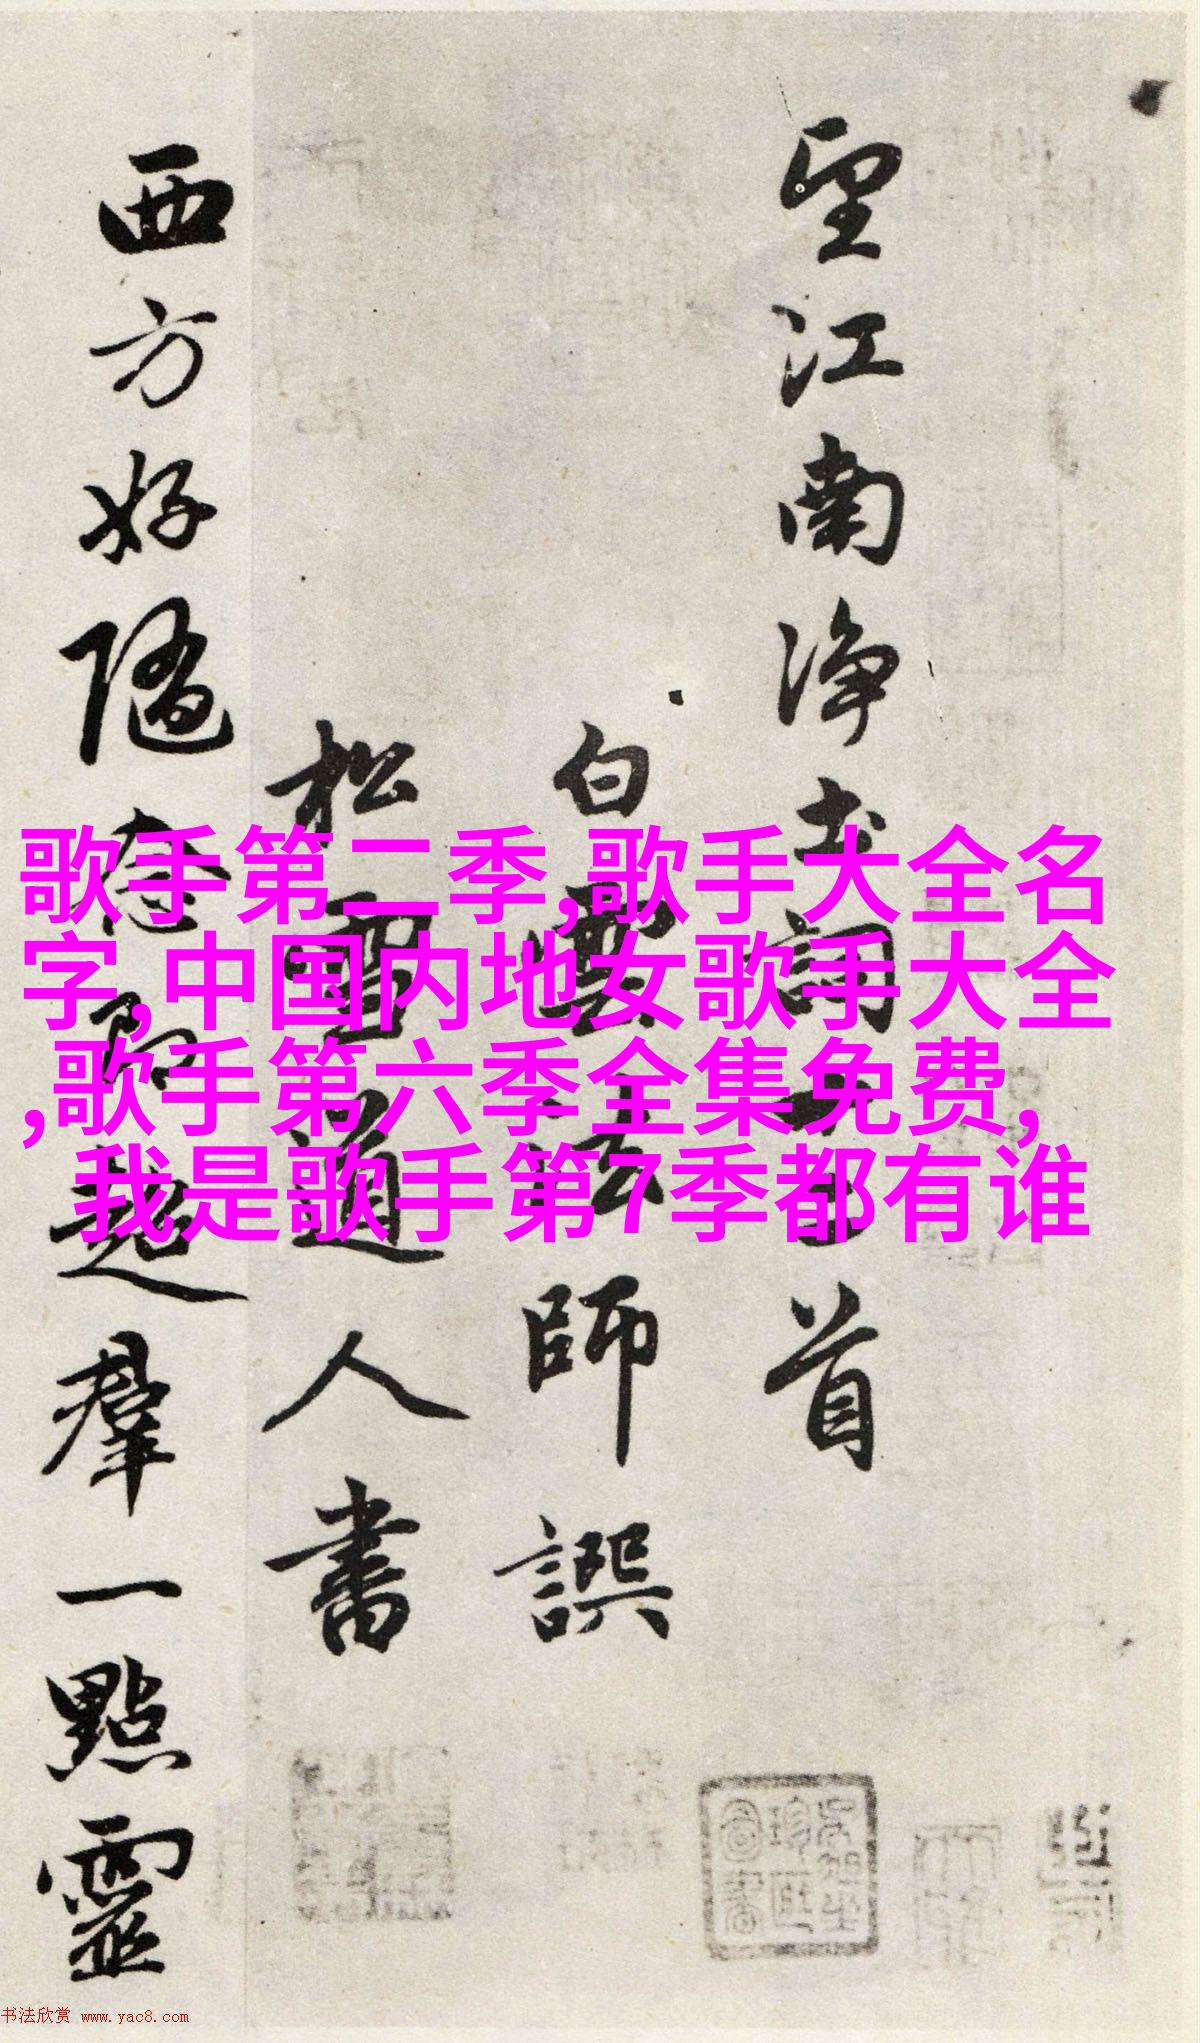 望江南净土詞十二首
白雲法師譔
松雪道人書
西方好隨念即超羣一點靈
歌手第二季,歌手大全名
字,中国内地女歌手大全
,歌手第六季全集免费,
我是歌手第7季都有谁
书法欣赏 www.yac8.com